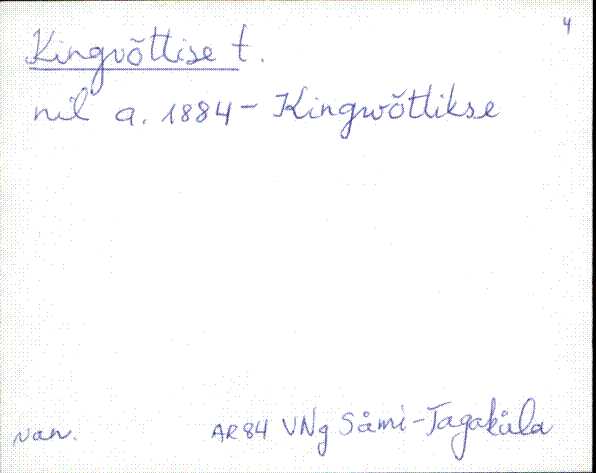 4
Kingvõttise t.
nil a. 1884 - Kingwõttikse
van. AR84 VNg Sämi-Tagaküla